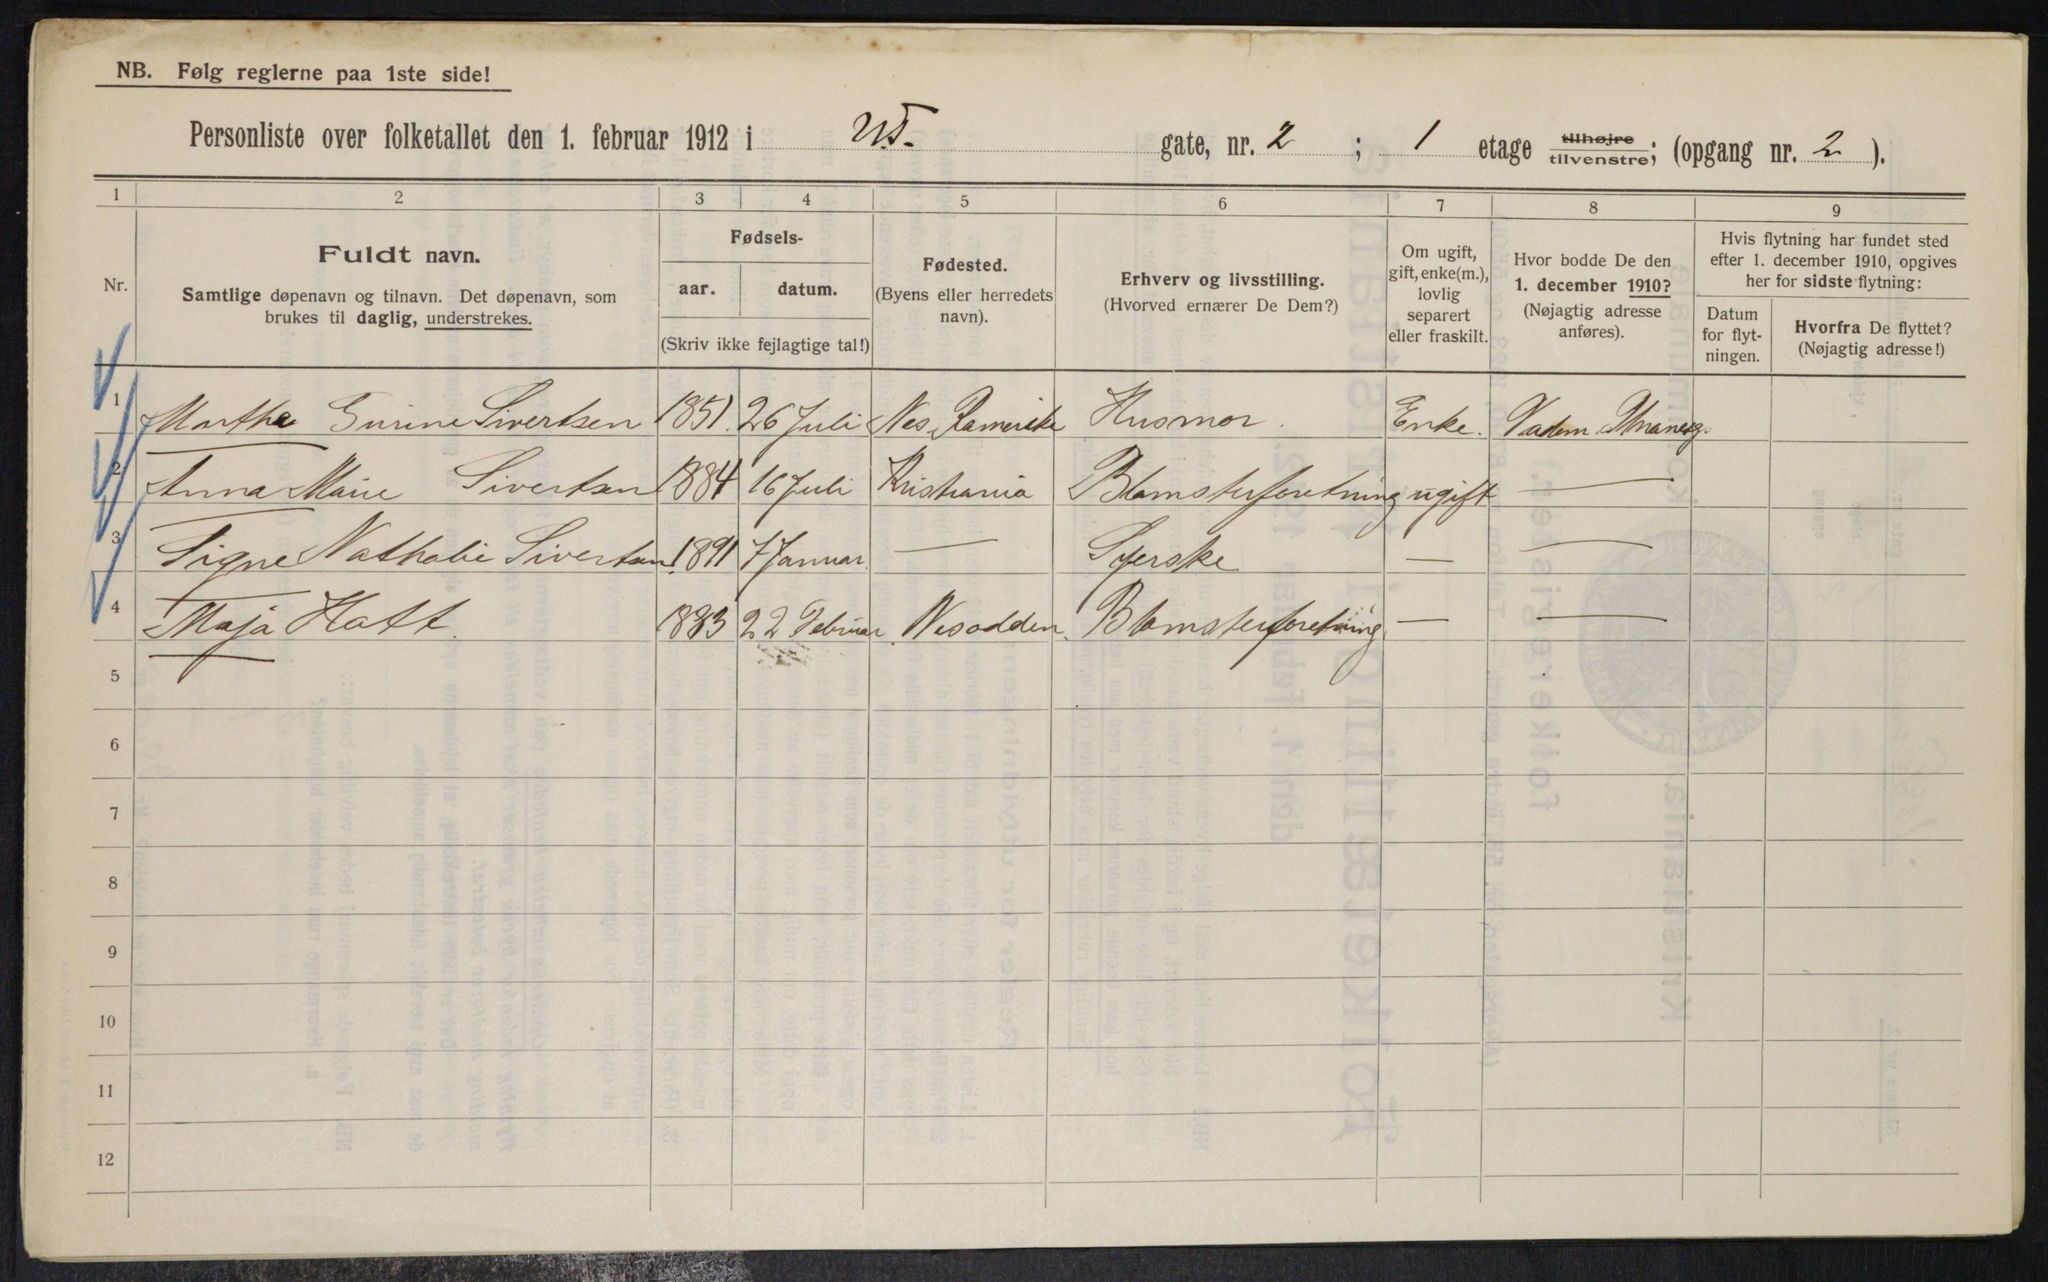 NB. Følg reglerne paa 1ste side!
Personliste over folketallet den 1. februar 1912 i gate, nr. 2 ; 1 etage tilhøjre tilvenstre; (opgang nr. 2).
1 2 3 4 5 6 7 8 9
Nr.
Fuldt navn.
Samtlige døpenavn og tilnavn. Det døpenavn, som
brukes til daglig, understrekes.
Fødsels-
aar. datum.
(Skriv ikke fejlagtige tal!)
Fødested.
(Byens eller herredets
navn).
Erhverv og livsstilling.
(Hvorved ernærer De Dem?)
Om ugift,
gift, enke(m.),
lovlig
separert
eller fraskilt.
Hvor bodde De den
1. december 1910?
(Nøjagtig adresse
anføres).
Hvis flytning har fundet sted
efter 1. december 1910, opgives
her for sidste flytning:
Datum
for flyt-
ningen.
Hvorfra De flyttet?
(Nøjagtig adresse!)
1 Marthe Gurine Sivertsen 1851 26 Juli Nes Romerike Husmor. Enke.
2 Anna Marie Sivertsen 1884 16 Juli Kristiania Blomsterforetning ugift —
3 Signe Nathalie Sivertsen 1891 7 Januar. — Syerske — —
4 Maja Hatt. 1883 22 Februar Nesodden. Blomsterforetning. — —
5
6
7
8
9
10
11
12